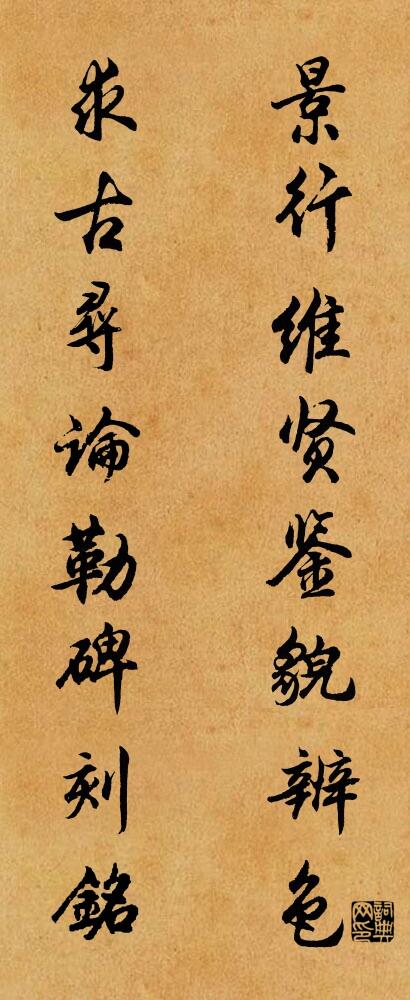 景行维贤鉴貌辨色
求古寻论勒碑刻銘
詞典网印